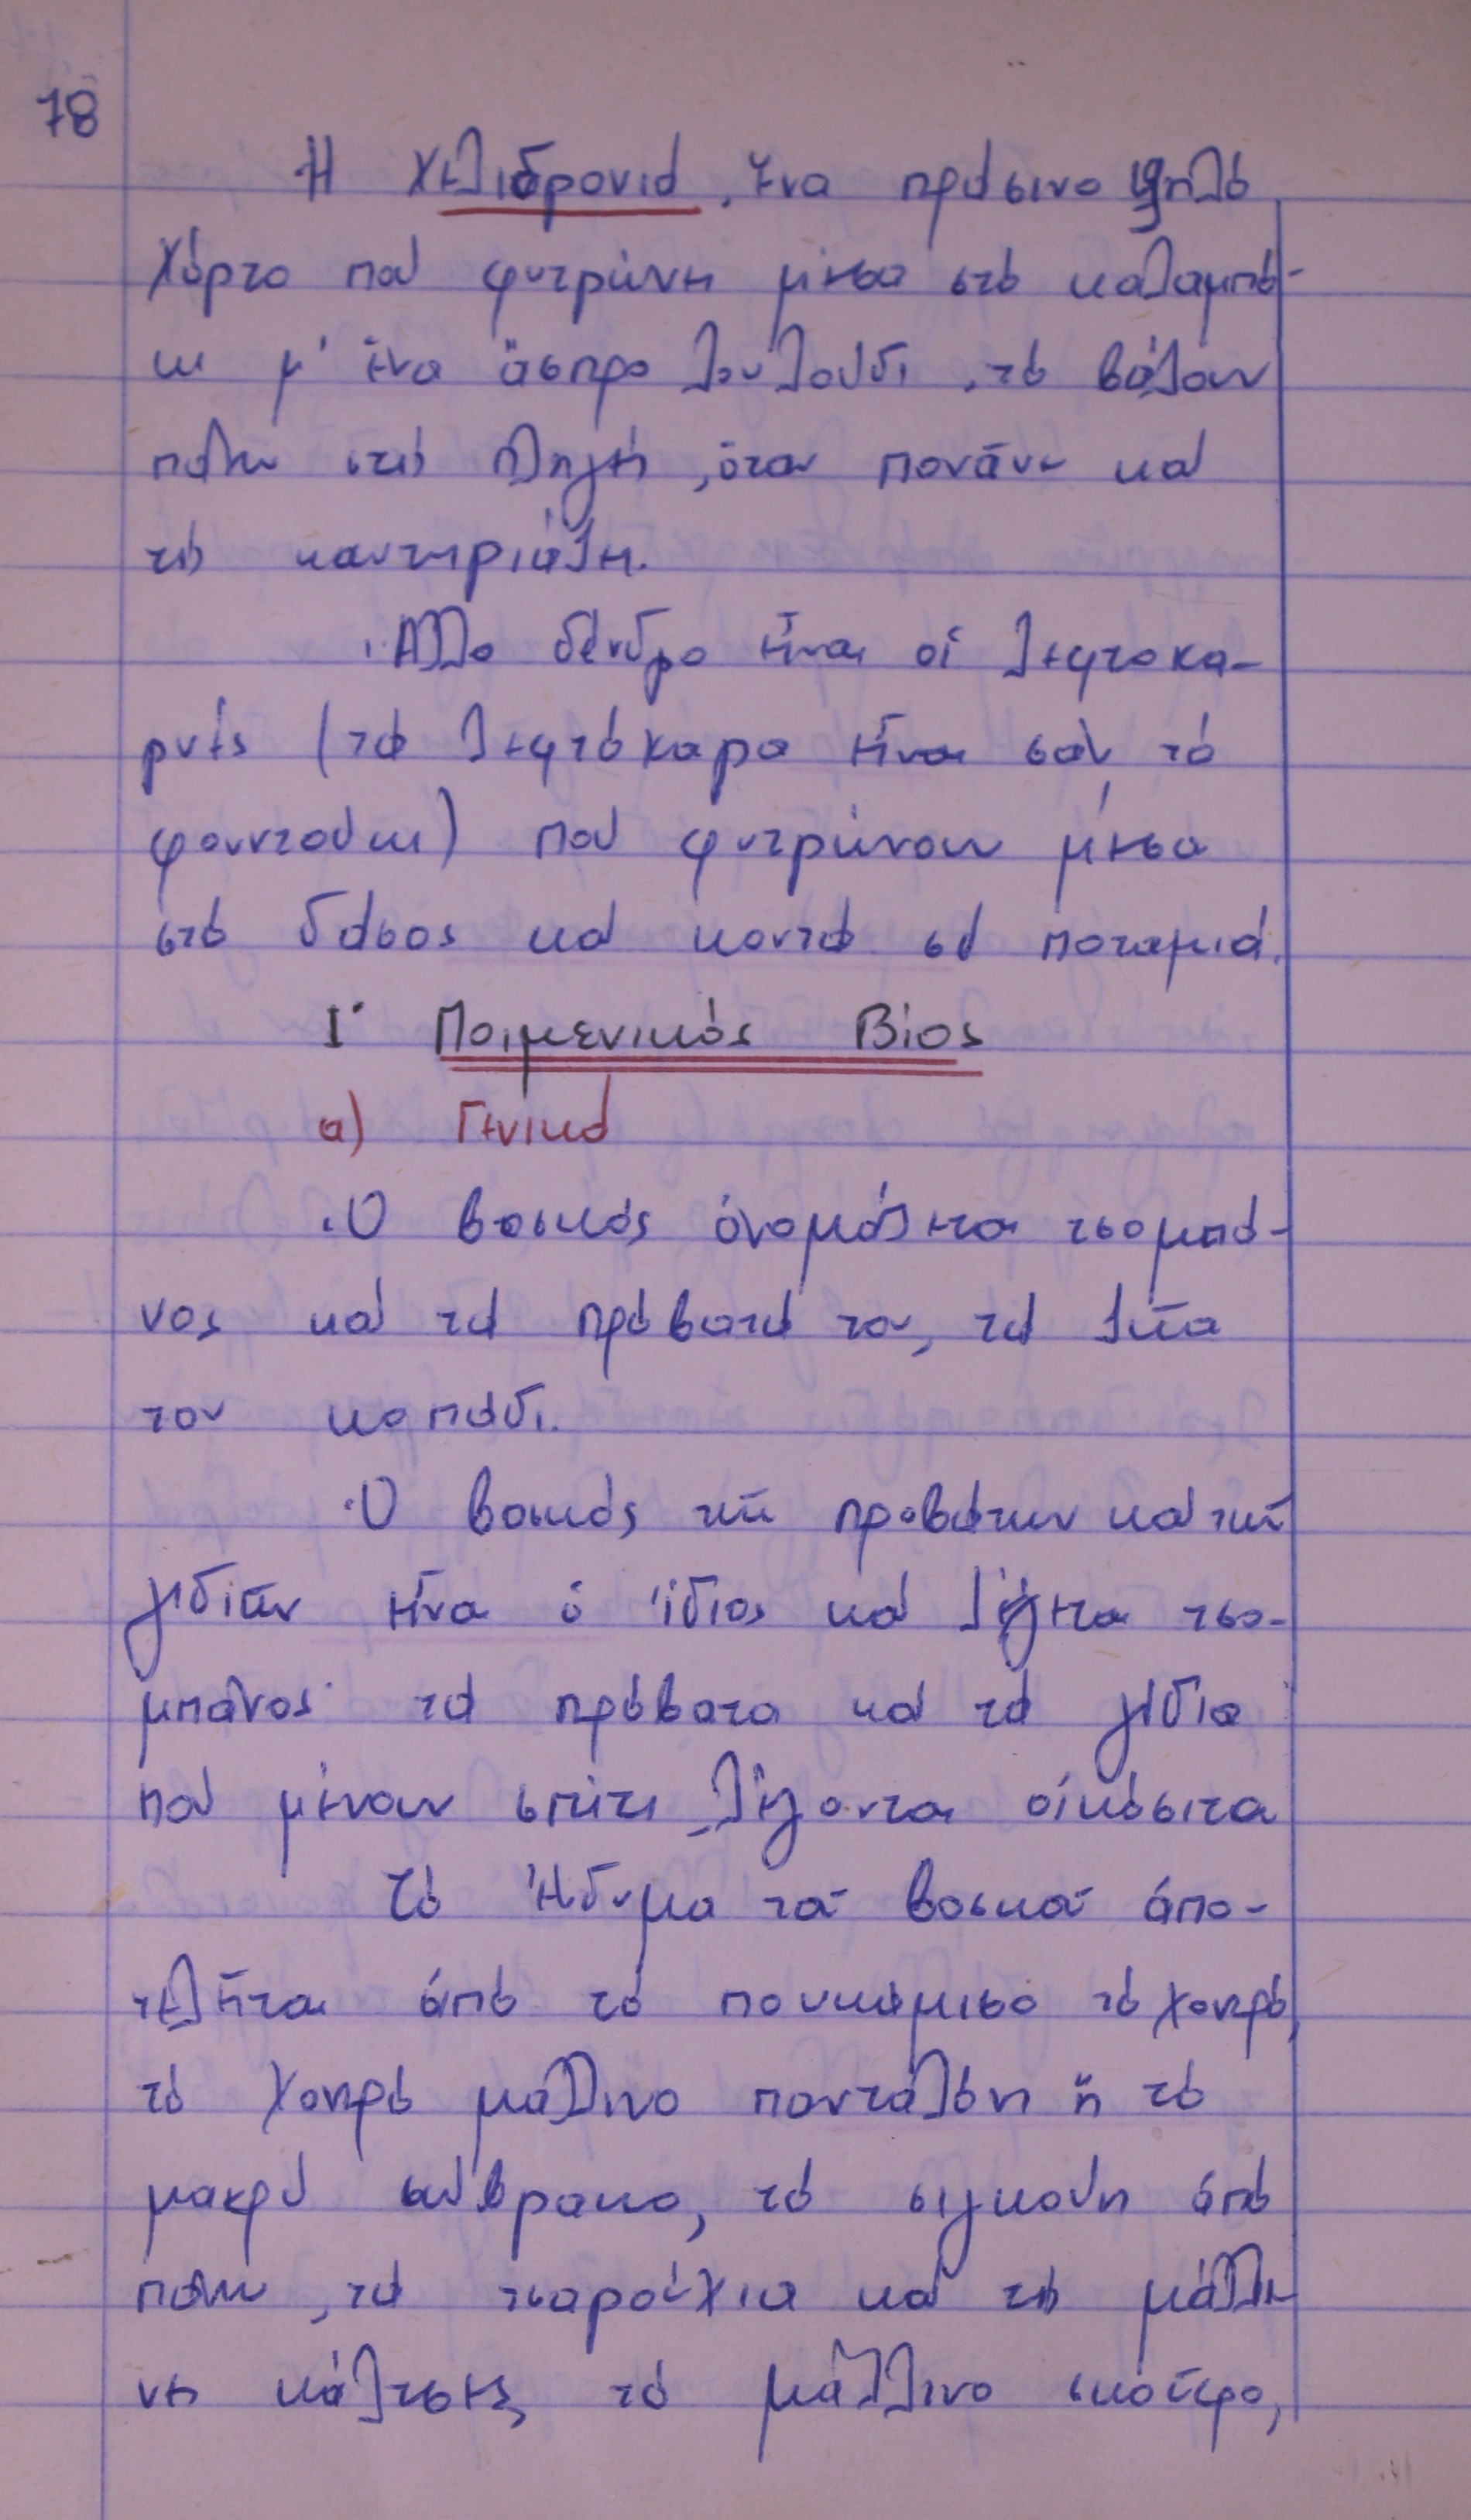 78
Ἡ Χελιδρονιά, ἕνα πράσινο ψηλό
χόρτο πού φυτρώνει μέσα στό καλαμπό-
κι μ' ἕνα ἄσπρο λουλούδι, τό βάλουν
πάνω στή πληγή, ὅταν πονάνε καί
τή καυτηριάζει.
Ἄλλο δένδρο εἶναι οἱ λεφτοκα-
ρυές (τά λεφτόκαρα εἶναι σάν τό
φουντούκι) πού φυτρώνουν μέσα
στό δάσος καί κοντά σέ ποταμιά.
Ι΄ Ποιμενικός Βίος
α) Γενικά
Ὁ βοσκός ὀνομάζεται τσομπά-
νος καί τά πρόβατά του, τά ζῶα
του κοπάδι.
Ὁ βοσκός τῶν προβάτων καί τῶν
γιδιῶν εἶναι ὁ ἴδιος καί λέγεται τσο-
μπάνος· τά πρόβατα καί τά γίδια
πού μένουν σπίτι λέγονται οἰκόσιτα
Τό ἔνδυμα τοῦ βοσκοῦ ἀπο-
τελεῖται ἀπό τό πουκάμισο τό χοντρό,
τό χοντρό μάλλινο πανταλόνι ἤ τό
μακρύ σώβρακο, τό σιγκούνι ἀπό
πάνω, τά τσαρούχια καί τίς μάλλι-
νες κάλτσες τό μάλλινο σκοῦφο,